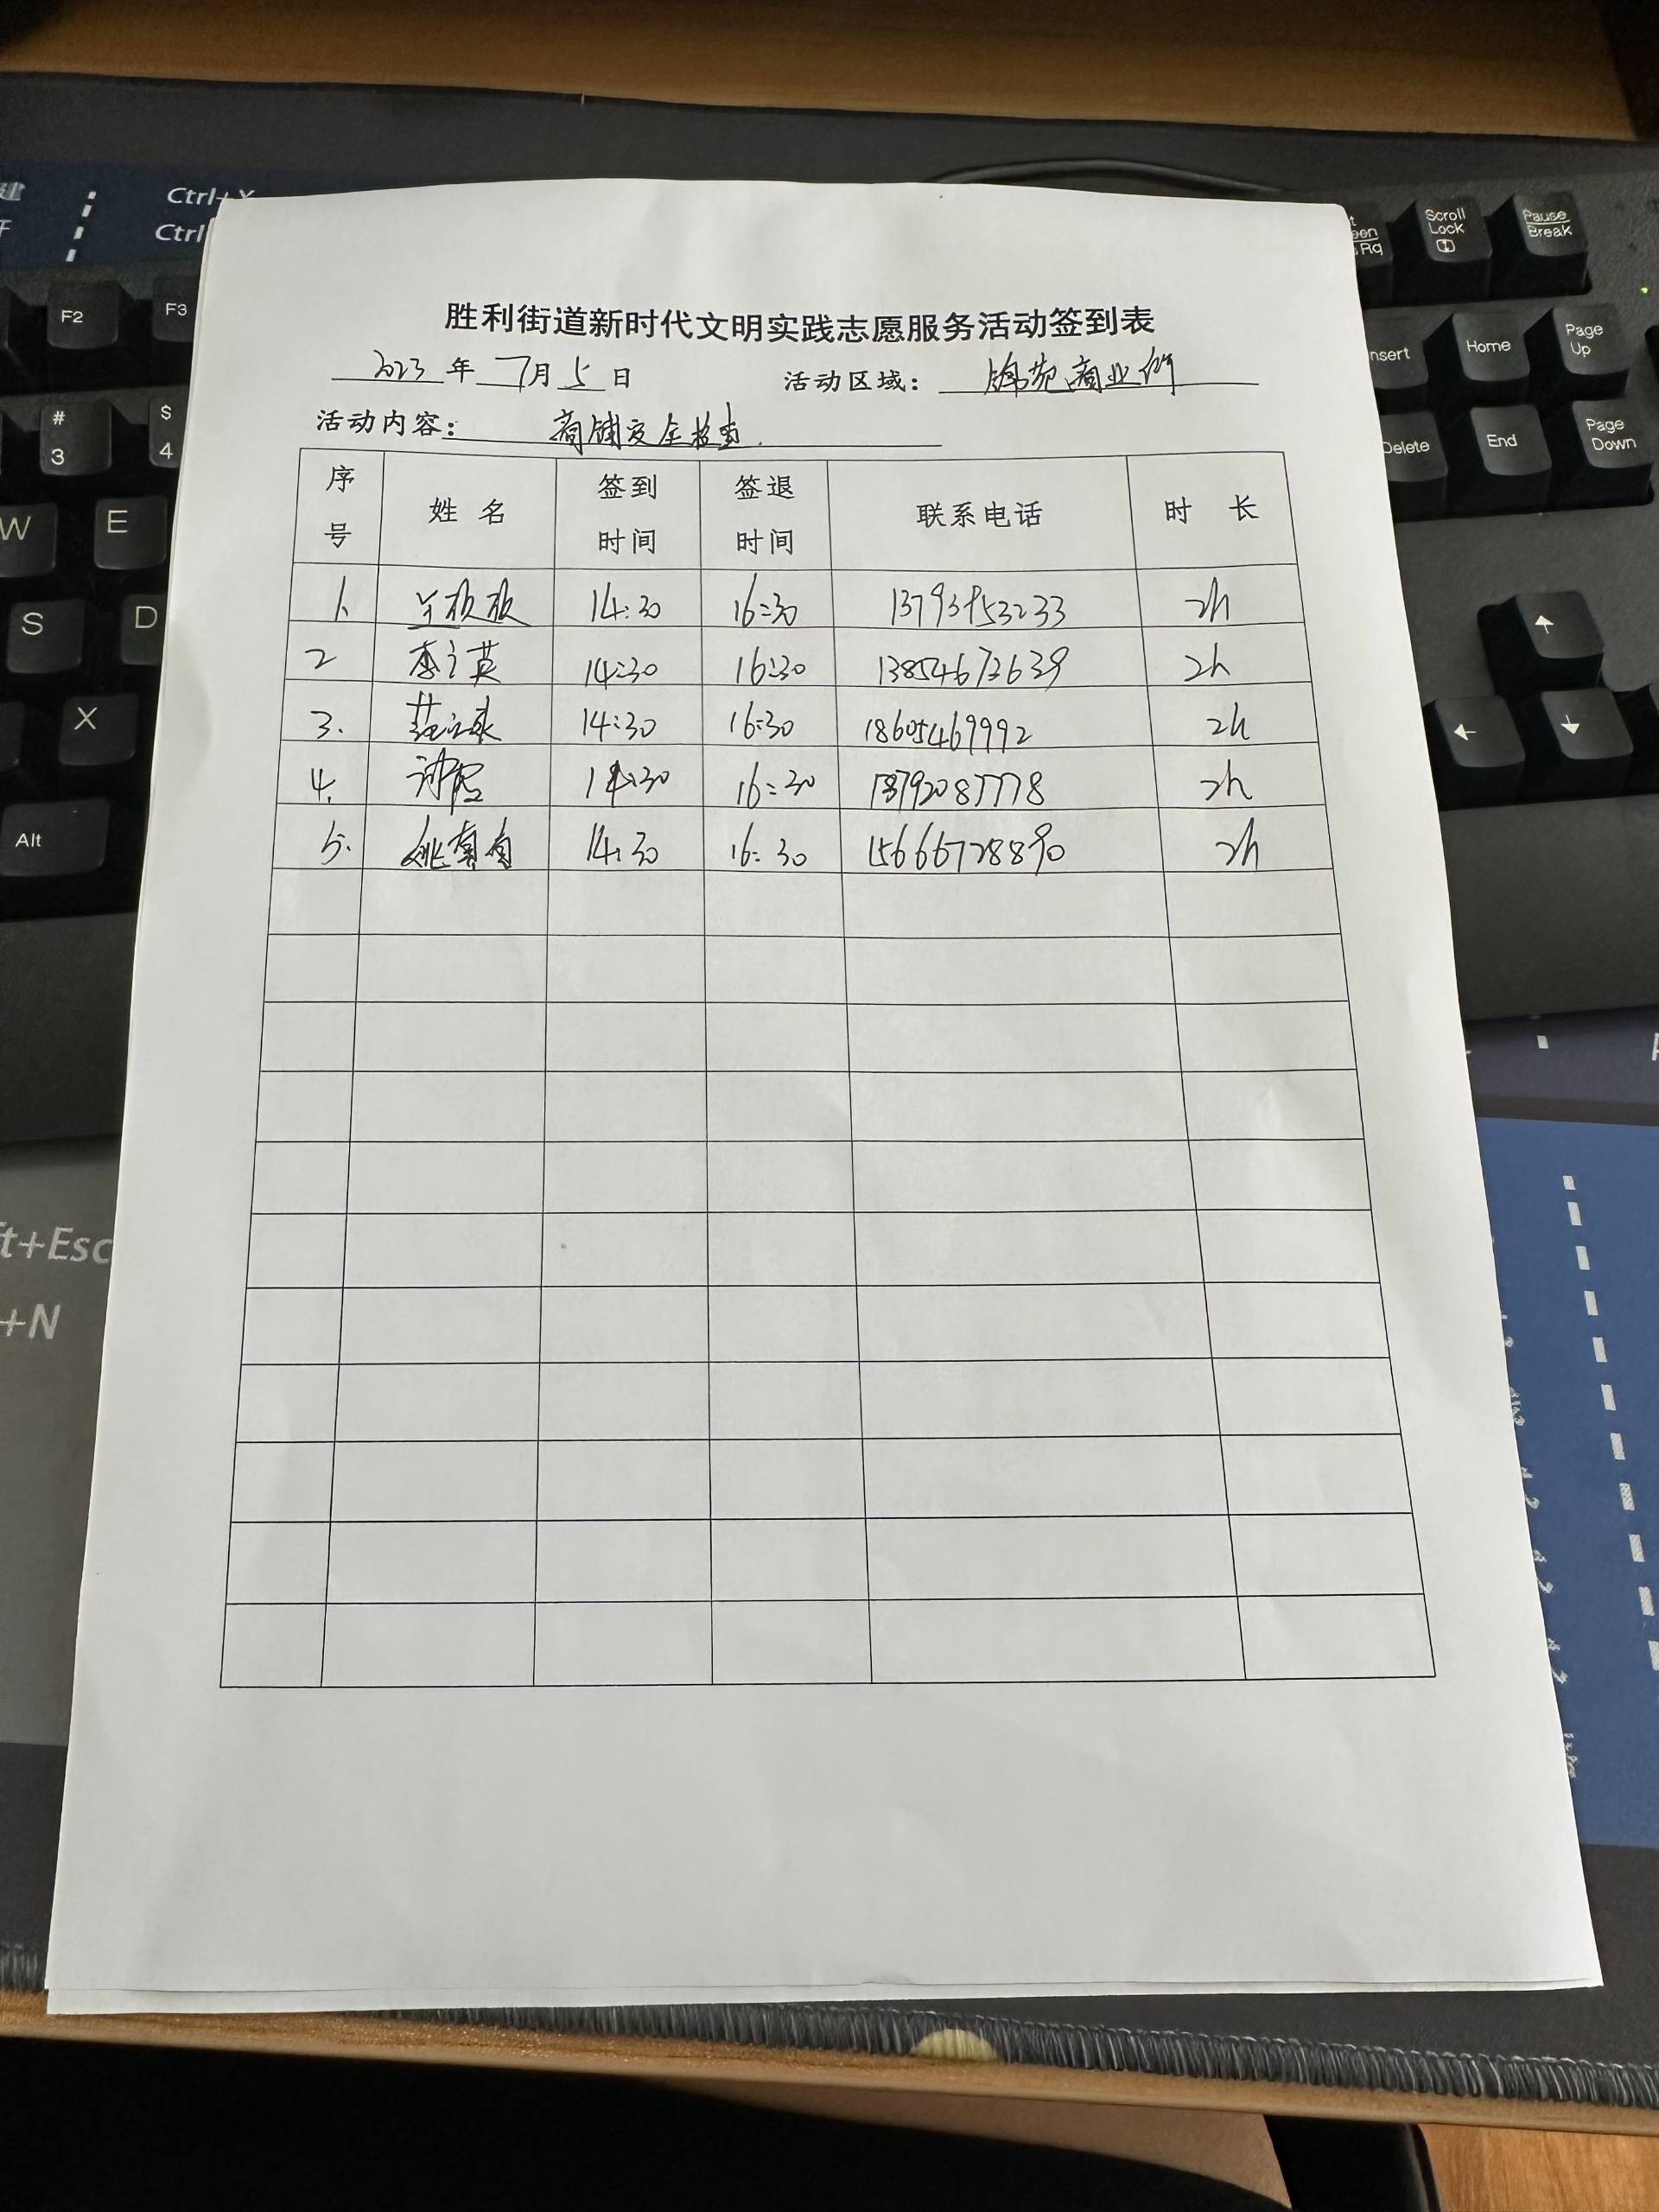 建
开
Ctrl+X
Ctrl
F2
F3
# 3
$ 4
W
E
S
D
X
Alt
Scroll Lock
Pause Break
Insert
Home
Page Up
Delete
End
Page Down
胜利街道新时代文明实践志愿服务活动签到表
2023年7月5日 活动区域: 锦苑商业街
活动内容: 商铺安全检查
序号 姓名 签到时间 签退时间 联系电话 时长
1. 14:30 16:30 13793953233 2h
2 李之英 14:30 16:30 13854673639 2h
3. 14:30 16:30 18605469992 2h
4. 14:30 16:30 13792087778 2h
5. 姚南南 14:30 16:30 15666728890 2h
t+Esc
+N